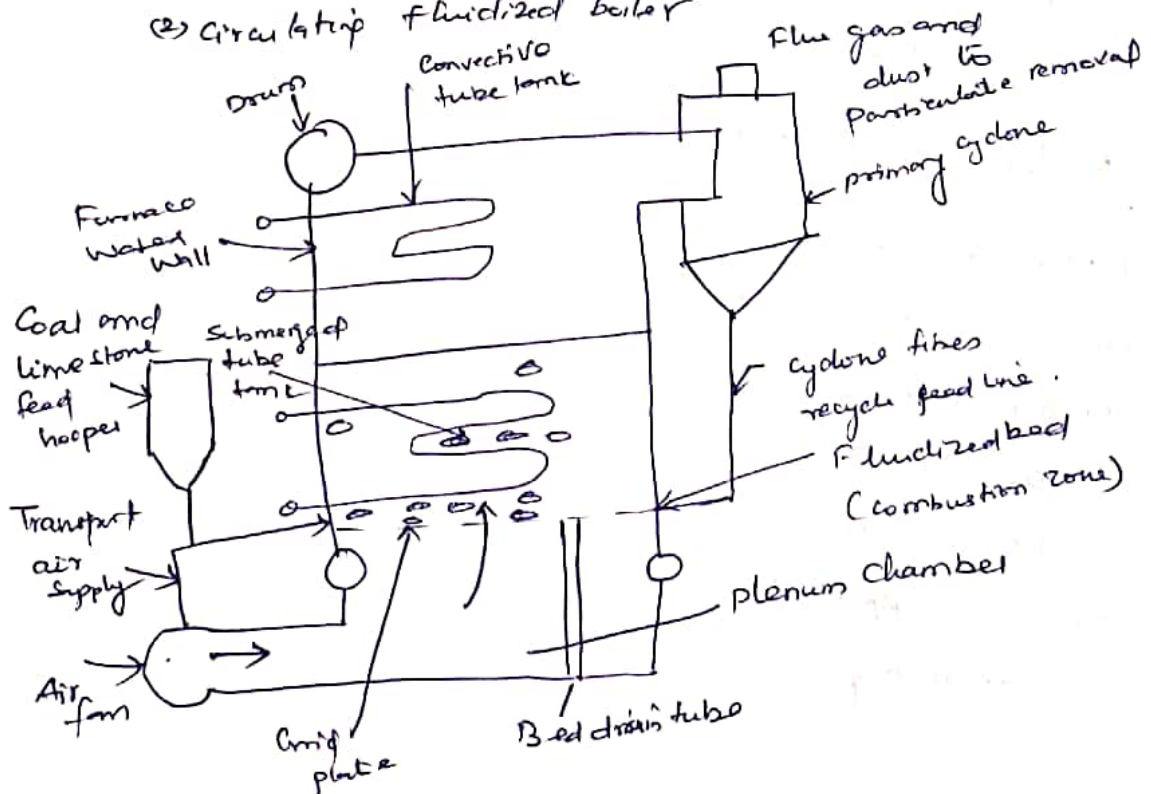 (2) Circulating fluidized boiler
Convective
tube tank
Drum
Flue gas and
dust to
Particulate removal
primary cyclone
Furnace
Water
Wall
Coal and
limestone
feed
hooper
Submerged
tube
tank
cyclone fines
recycle feed line.
Fluidized bed
(combustion zone)
Transport
air
supply
plenum chamber
Air
fan
Grid
plate
Bed drain tube